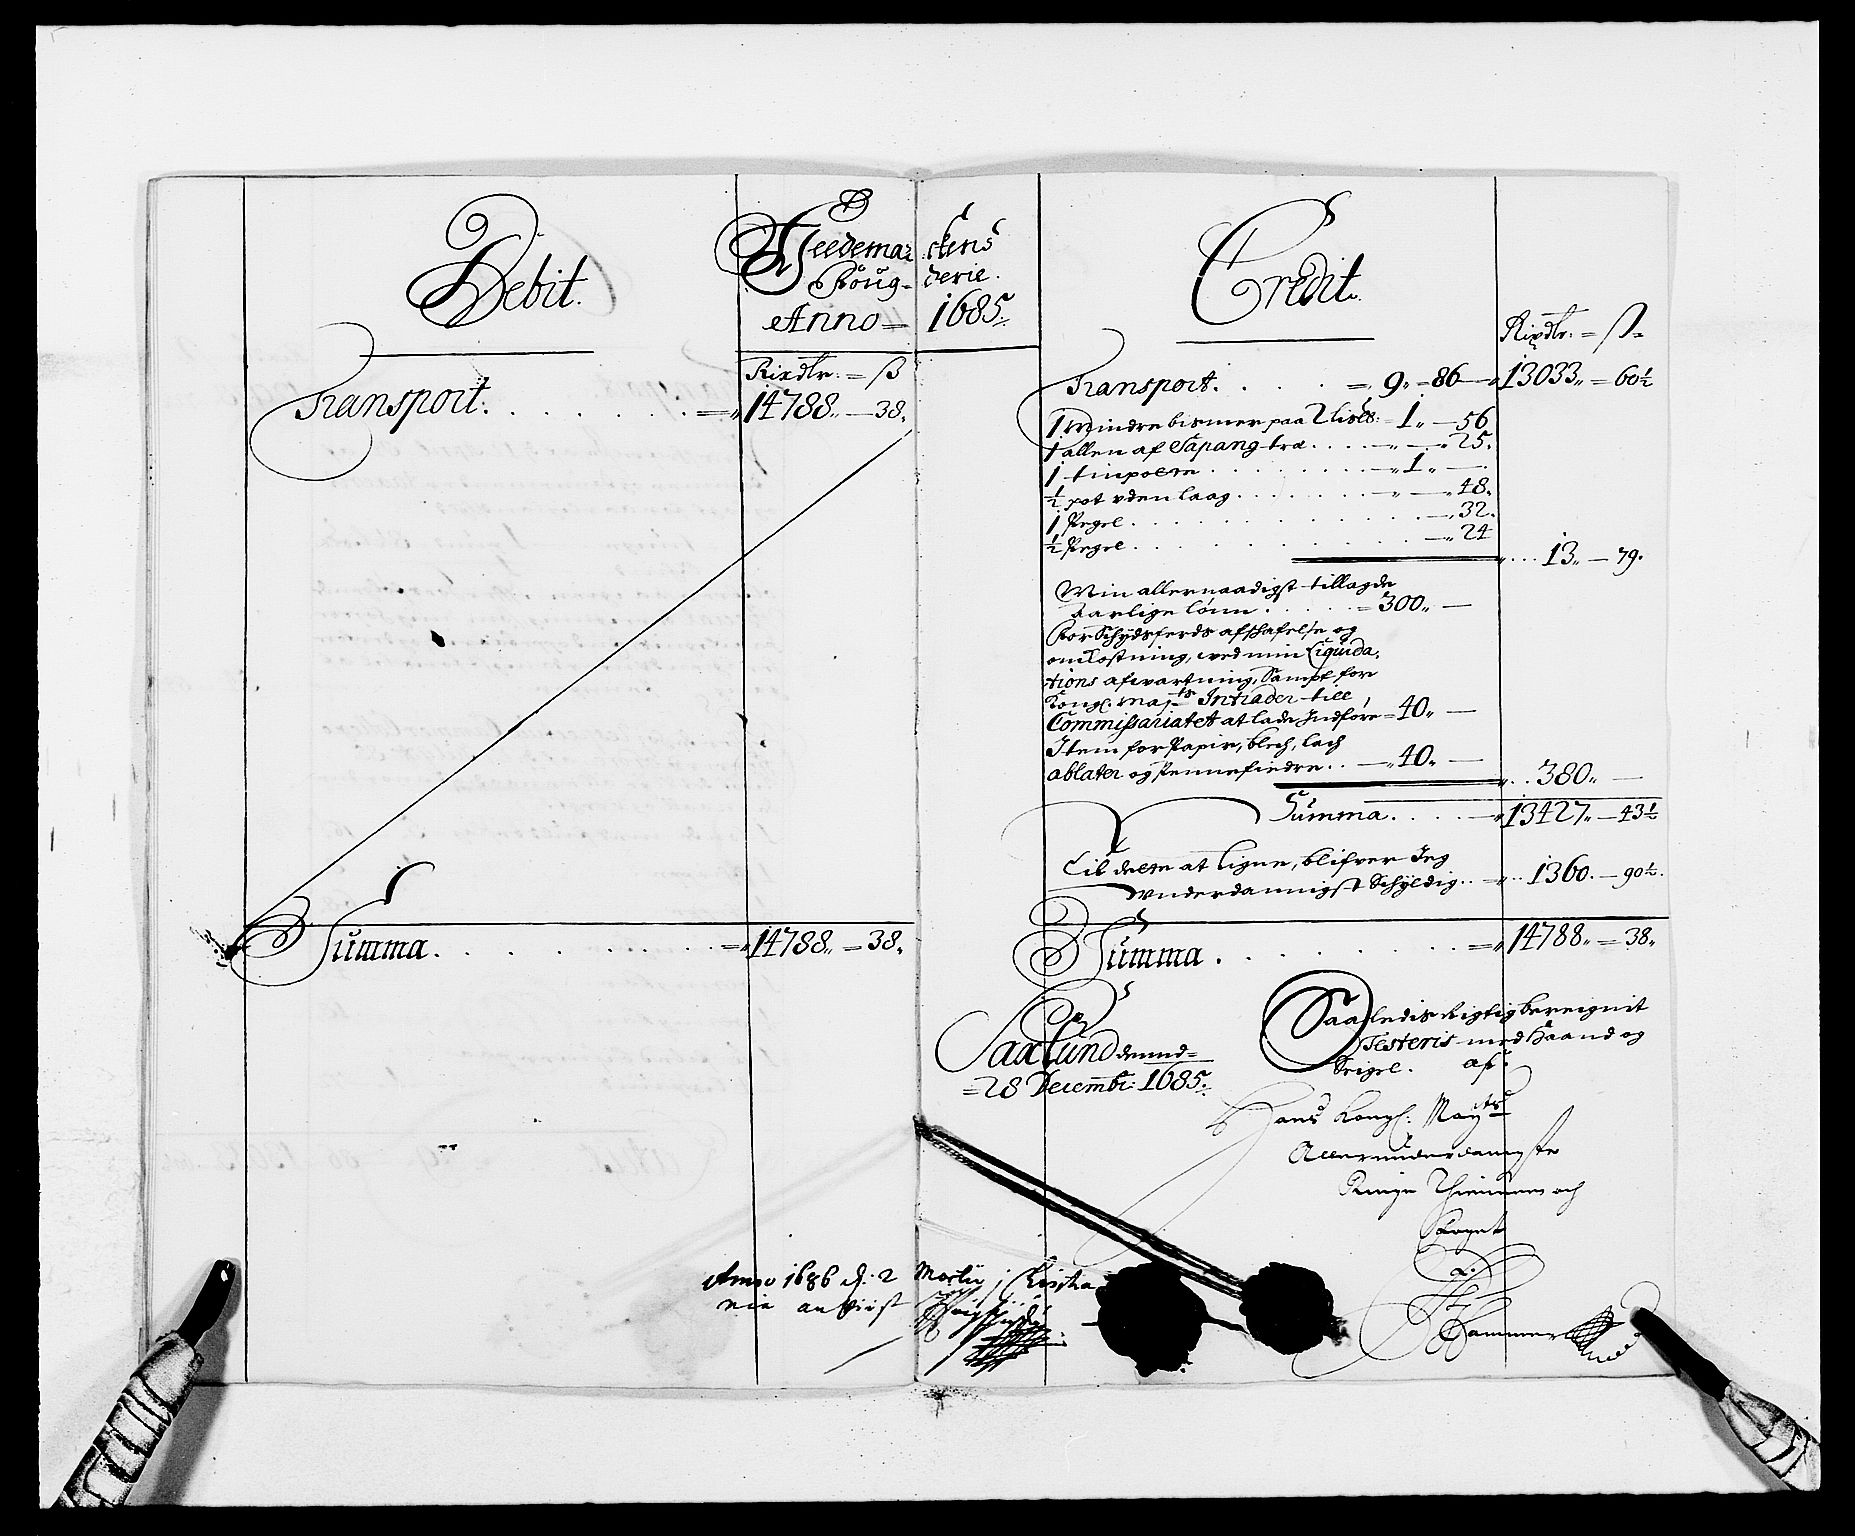 Debit.
Heedema= rkens
Foug= derie.
Anno= 1685.
Rixdlr. = ß
Transport. . . . . . . =„ 14788„ — 38„
Summa. . . . . . . =„ 14788„ = 38„
Credit.
Rixdlr. = ß
Transport. . . . . =„ 9„ = 86 —„ 13033„ = 60½
1 mindre bismer paa = 1„ — 56
1 allen af Sapang træ . . . . —„ — 25„
1 tinpotte . . . . . . —„ 1„ —
½ pot uden laag . . . . . —„ — 48„
1 Pegel . . . . . . . — 32„
½ Pegel . . . . . . . —„ 24
„ . . . 13„ — 79„
Min allernaadigst tillagde
aarlige lönn . . . . = 300„ —
For Schydsferds afschafelse og
omkostning, ved min Liquida=
tions afwartning, Sampt for
Kongl: mayts Intrader till
Commissariatet at lade Indföre = 40„ —
Item for Papir, blech, lach
ablater og Pennefiedre . . —„ 40„ —
„ . . 380„ —
Summa . . . . —„ 13427„ — 43½
Til dette at ligne, blifver Jeg
underdannigst Schyldig . . —„ . . 1360„ — 90½
Summa . . . . . . =„ 14788„ = 38„
Saxlund dend=
= 28 Decembr: 1685.
Saaledis Rigtig bereignit
Testeris med Haand og
Seigel. af
Hans Kongl: Mayts
Allerunderdanigste
Ringe Thienner och
Foget
Hammer
Anno 1686 d: 2 Martij i Christia
nia antviist